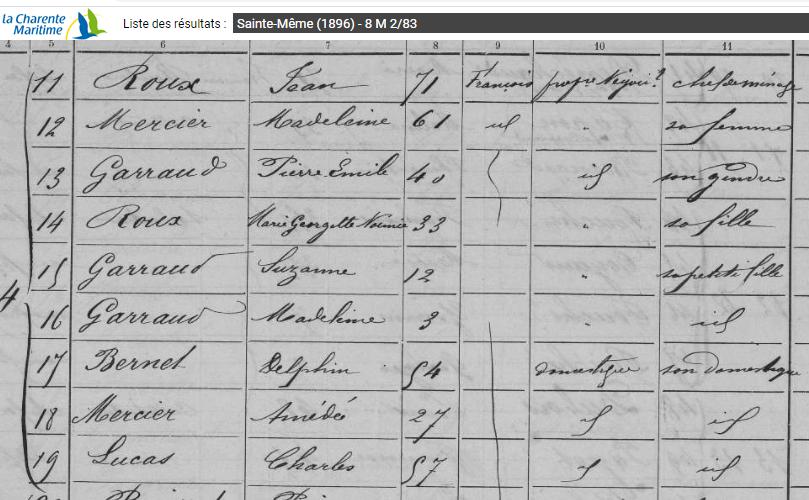 la Charente
Maritime
Liste des résultats : Sainte-Même (1896) - 8 M 2/83
4 5 6 7 8 9 10 11
11 Roux Jean 71 Français propre Négoci? chef de ménage
12 Mercier Madeleine 61 id " sa femme
13 Garraud Pierre Émile 40 id son gendre
14 Roux Marie Georgette Noémie 33 " sa fille
15 Garraud Suzanne 12 " sa petite fille
4
16 Garraud Madeleine 3 " id
17 Bernet Delphin 54 domestique son domestique
18 Mercier Amédée 27 id id
19 Lucas Charles 57 id id